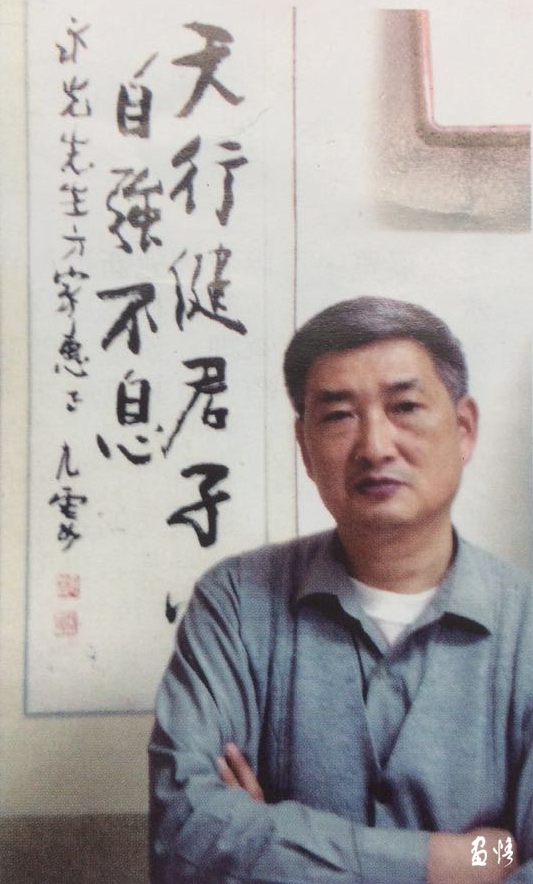 天行健君子
自強不息
永光先生方家惠正